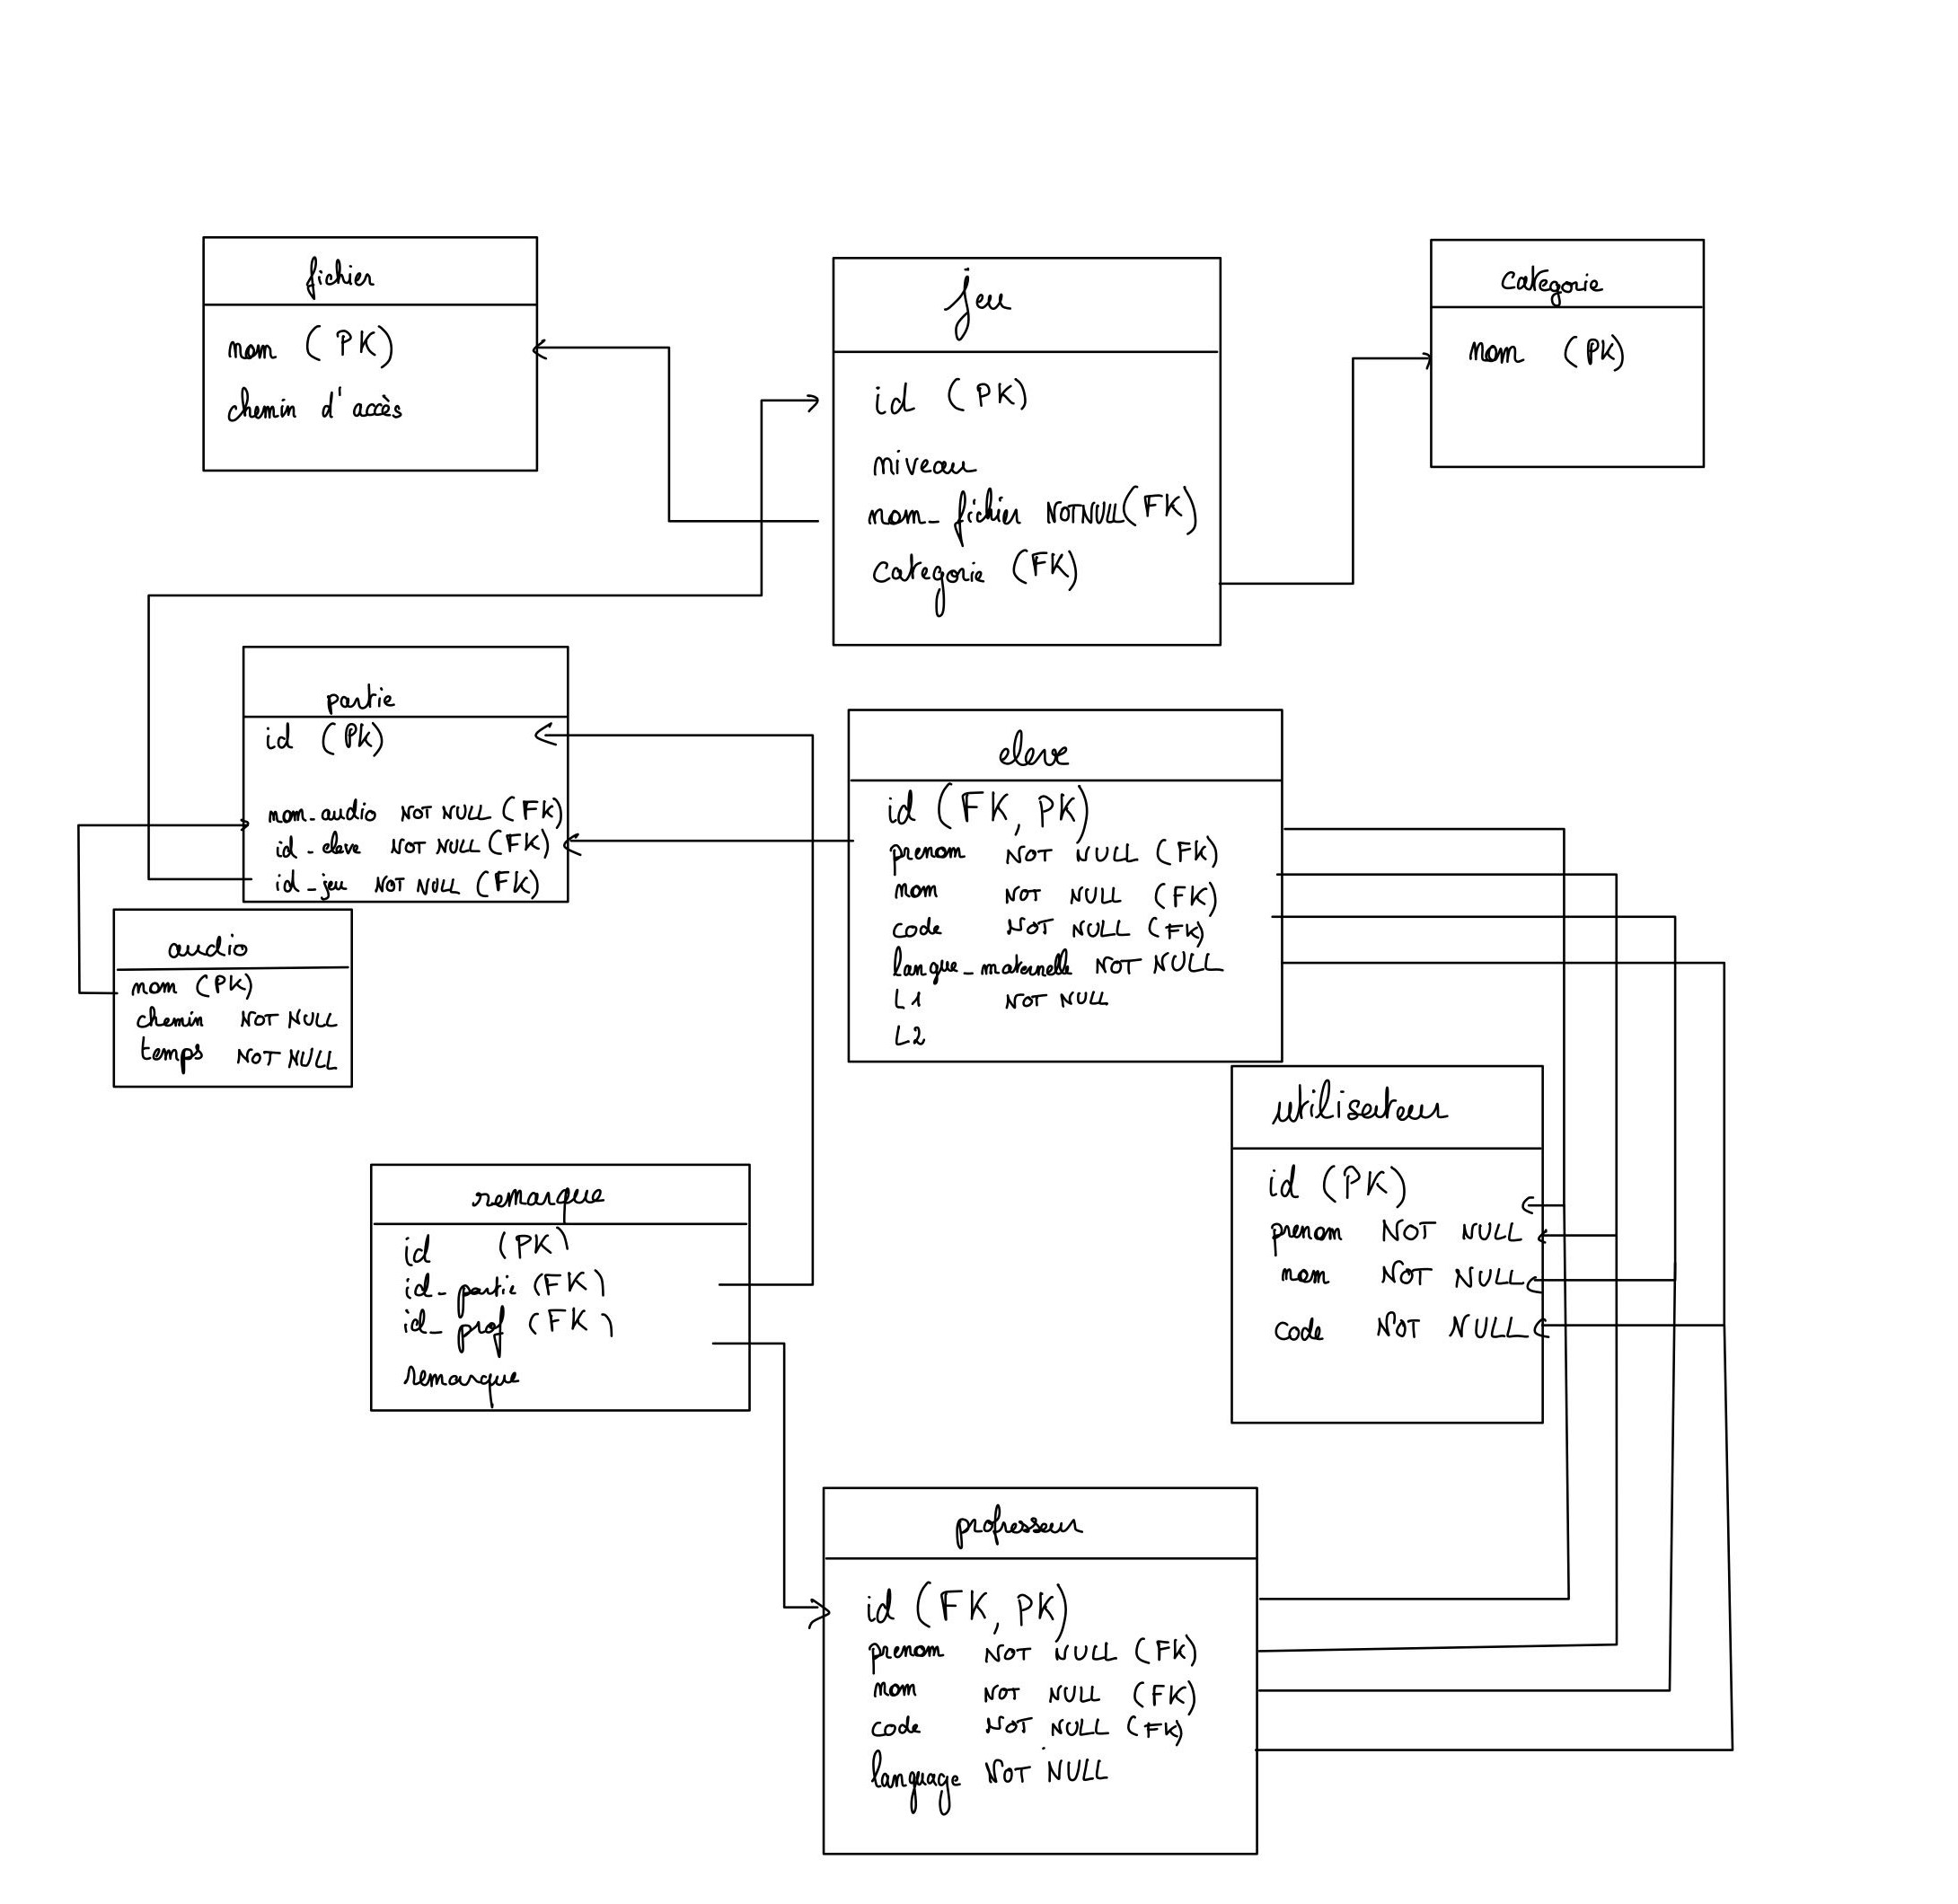 fichier
nom (PK)
chemin d'accès
jeu
id (PK)
niveau
nom_fichier NOTNULL (FK)
categorie (FK)
categorie
nom (PK)
partie
id (PK)
nom_audio NOT NULL (FK)
id_eleve NOT NULL (FK)
id_jeu NOT NULL (FK)
eleve
id (FK, PK)
prenom NOT NULL (FK)
nom NOT NULL (FK)
code NOT NULL (FK)
langue_maternelle NOT NULL
L1 NOT NULL
L2
audio
nom (PK)
chemin NOT NULL
temps NOT NULL
utilisateur
id (PK)
prenom NOT NULL
nom NOT NULL
code NOT NULL
remarque
id (PK)
id_partie (FK)
id_prof (FK)
remarque
professeur
id (FK, PK)
prenom NOT NULL (FK)
nom NOT NULL (FK)
code NOT NULL (FK)
language NOT NULL